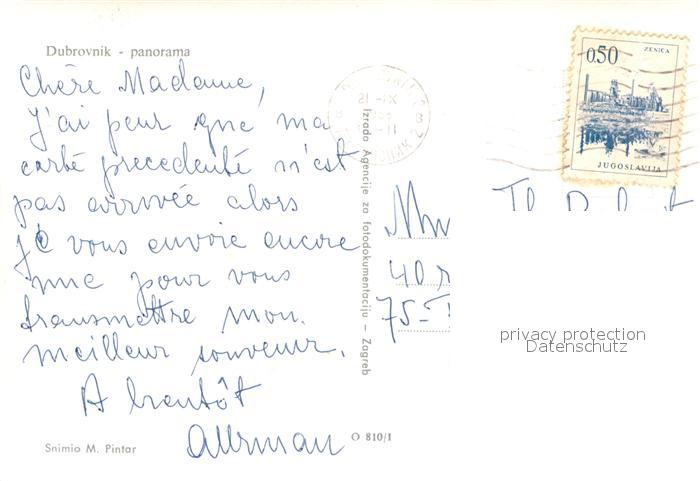 Dubrovnik - panorama
Chère Madame,
J'ai peur que ma
carte precedente n'est
pas arrivée alors
je vous envoie encore
une pour vous
transmettre mon
meilleur souvenir.
A bientôt
Snimio M. Pintar
O 810/1
Izrada Agencije za fotodokumentaciju – Zagreb
21 -IX
0.50
ZENICA
JUGOSLAVIJA
40
75-
privacy protection
Datenschutz